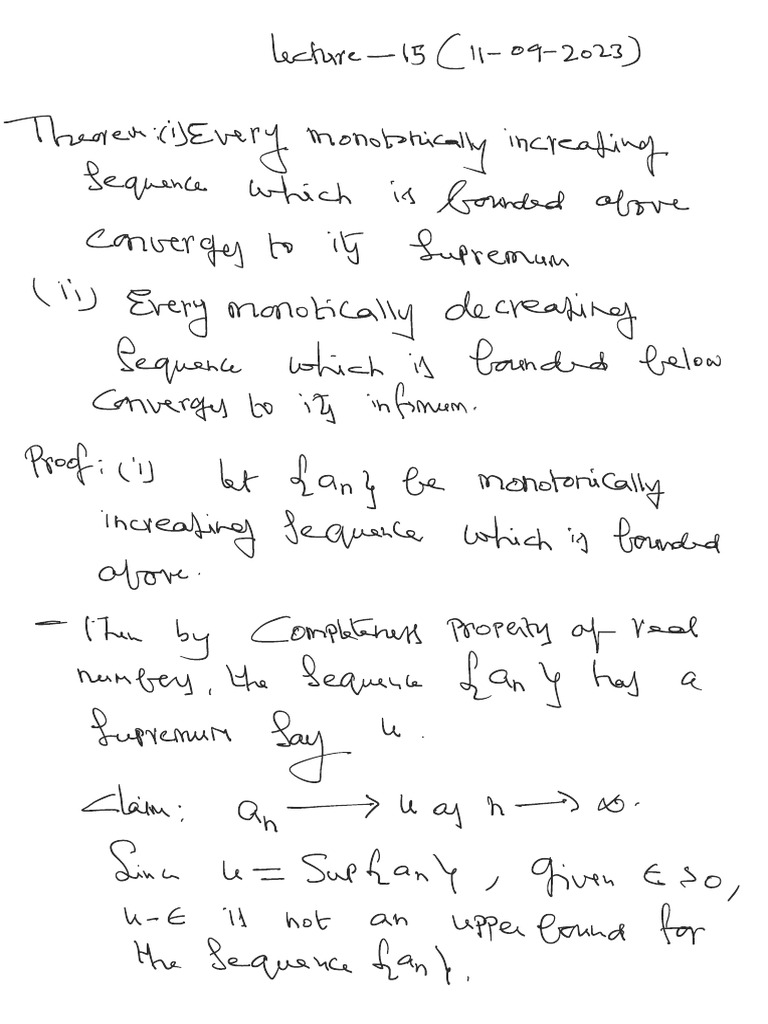 Lecture-15 (11-09-2023)
Theorem: (i) Every monotonically increasing
sequence which is bounded above
converges to its supremum
(ii) Every monotically decreasing
sequence which is bounded below
converges to its infimum.
Proof: (i) let {an} be monotonically
increasing sequence which is bounded
above.
- Then by Completeness property of real
numbers, the sequence {an} has a
supremum say u.
Claim: an → u as n → ∞.
Since u = Sup{an}, given ϵ > 0,
u-ϵ is not an upper bound for
the sequence {an}.